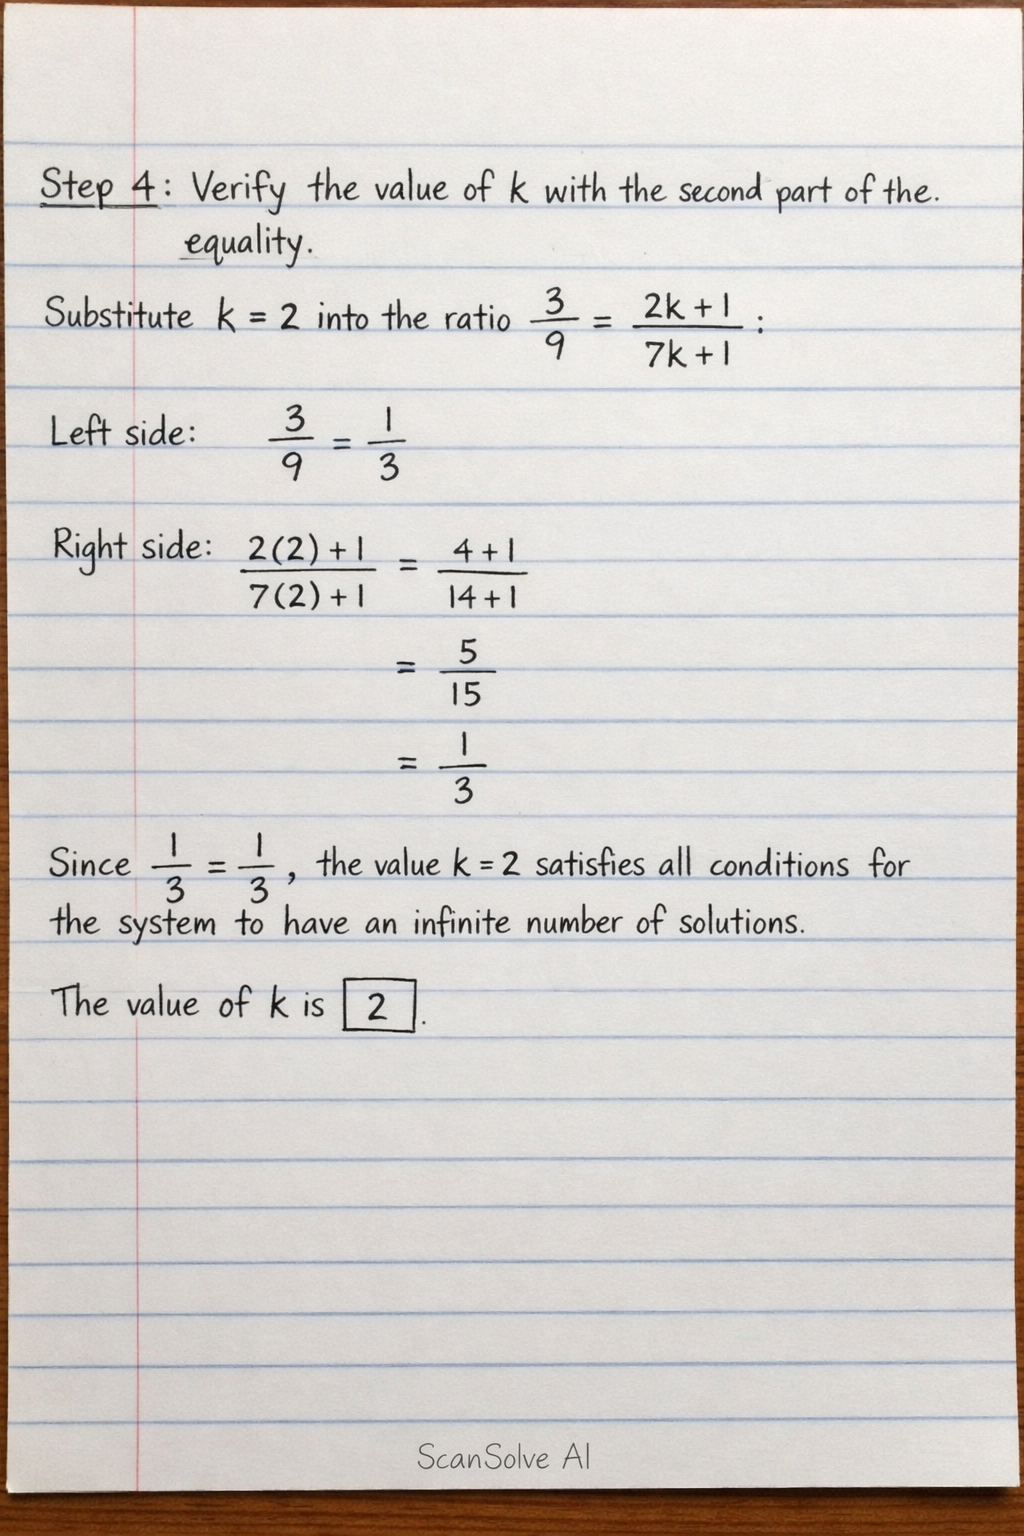 Step 4: Verify the value of k with the second part of the.
equality.
Substitute k = 2 into the ratio 3/9 = (2k+1)/(7k+1) :
Left side: 3/9 = 1/3
Right side: (2(2)+1)/(7(2)+1) = (4+1)/(14+1)
= 5/15
= 1/3
Since 1/3 = 1/3, the value k = 2 satisfies all conditions for
the system to have an infinite number of solutions.
The value of k is 2.
ScanSolve AI